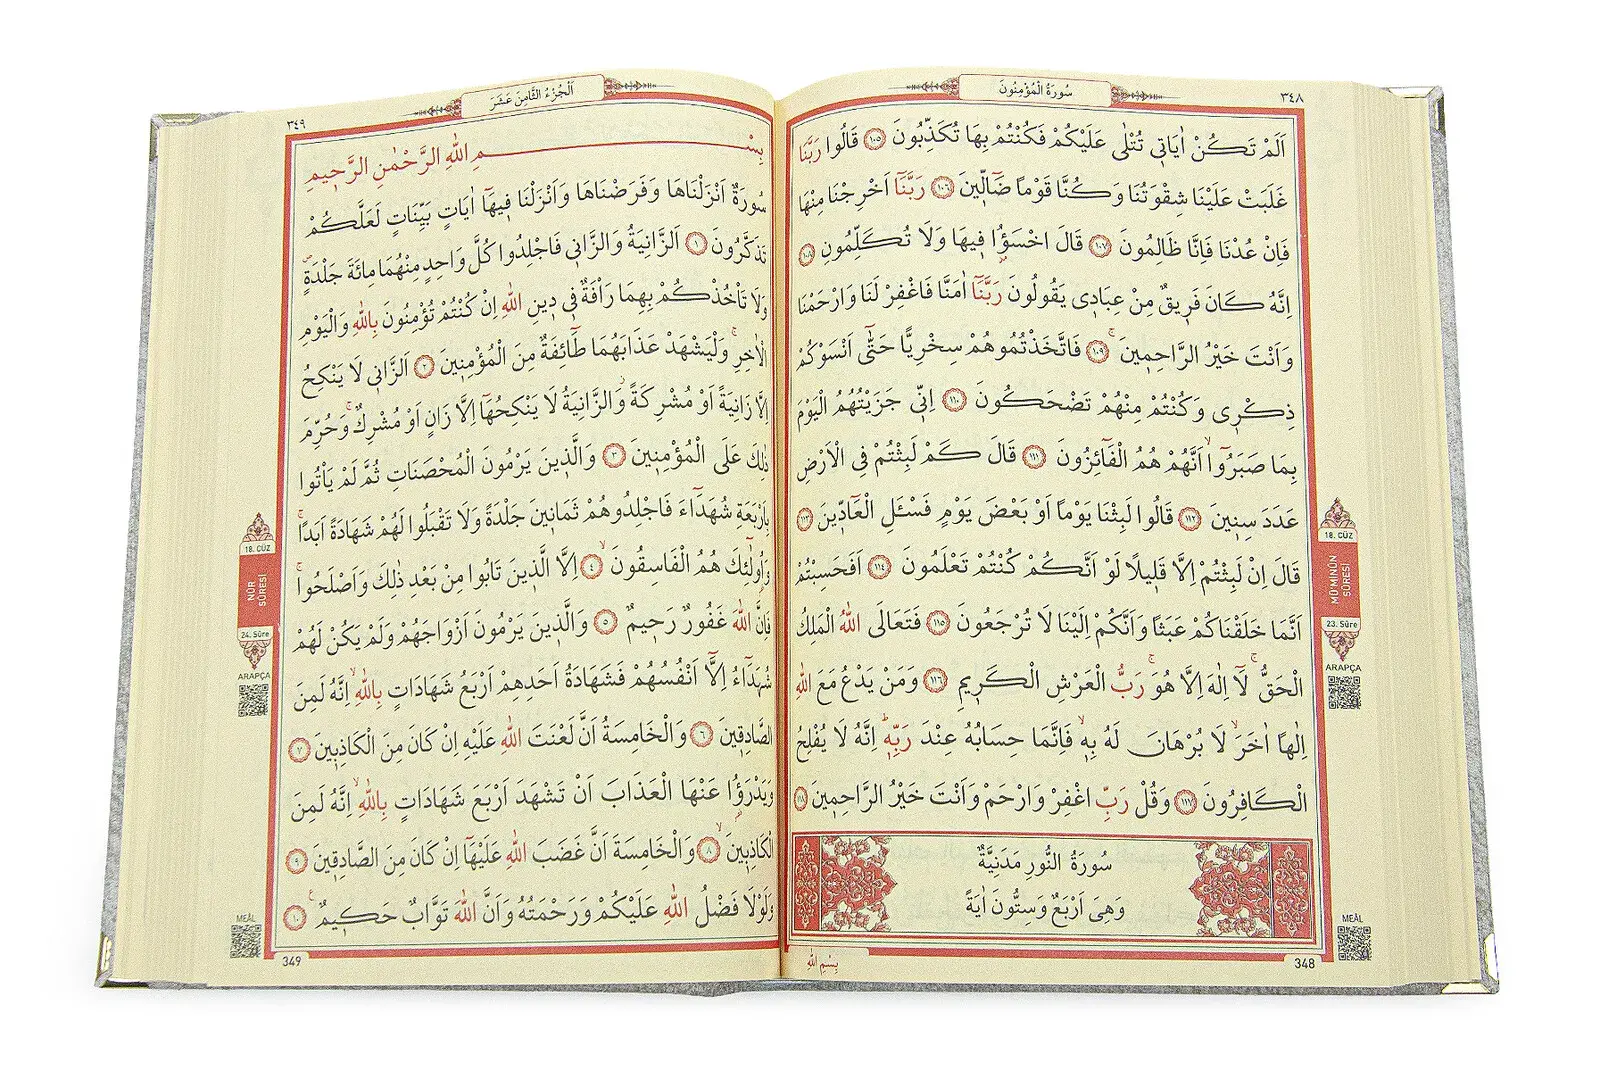 سُورَةُ الْمُؤْمِنُونَ
٣٤٨
اَلَمْ تَكُنْ اٰيَات۪ي تُتْلٰى عَلَيْكُمْ فَكُنْتُمْ بِهَا تُكَذِّبُونَ ١٠٥ قَالُوا رَبَّنَا
غَلَبَتْ عَلَيْنَا شِقْوَتُنَا وَكُنَّا قَوْمًا ضَٓالّ۪ينَ ١٠٦ رَبَّنَٓا اَخْرِجْنَا مِنْهَا
فَاِنْ عُدْنَا فَاِنَّا ظَالِمُونَ ١٠٧ قَالَ اخْسَؤُ۫ا ف۪يهَا وَلَا تُكَلِّمُونِ ١٠٨
اِنَّهُ كَانَ فَر۪يقٌ مِنْ عِبَاد۪ي يَقُولُونَ رَبَّنَٓا اٰمَنَّا فَاغْفِرْ لَنَا وَارْحَمْنَا
وَاَنْتَ خَيْرُ الرَّاحِم۪ينَۚ ١٠٩ فَاتَّخَذْتُمُوهُمْ سِخْرِيًّا حَتّٰٓى اَنْسَوْكُمْ
ذِكْر۪ي وَكُنْتُمْ مِنْهُمْ تَضْحَكُونَ ١١٠ اِنّ۪ي جَزَيْتُهُمُ الْيَوْمَ
بِمَا صَبَرُٓواۙ اَنَّهُمْ هُمُ الْفَٓائِزُونَ ١١١ قَالَ كَمْ لَبِثْتُمْ فِي الْاَرْضِ
عَدَدَ سِن۪ينَ ١١٢ قَالُوا لَبِثْنَا يَوْمًا اَوْ بَعْضَ يَوْمٍ فَسْـَٔلِ الْعَٓادّ۪ينَ ١١٣
قَالَ اِنْ لَبِثْتُمْ اِلَّا قَل۪يلًا لَوْ اَنَّكُمْ كُنْتُمْ تَعْلَمُونَ ١١٤ اَفَحَسِبْتُمْ
اَنَّمَا خَلَقْنَاكُمْ عَبَثًا وَاَنَّكُمْ اِلَيْنَا لَا تُرْجَعُونَ ١١٥ فَتَعَالَى اللّٰهُ الْمَلِكُ
الْحَقُّۚ لَٓا اِلٰهَ اِلَّا هُوَۚ رَبُّ الْعَرْشِ الْكَر۪يمِ ١١٦ وَمَنْ يَدْعُ مَعَ اللّٰهِ
اِلٰهًا اٰخَرَۙ لَا بُرْهَانَ لَهُ بِه۪ۙ فَاِنَّمَا حِسَابُهُ عِنْدَ رَبِّه۪ۜ اِنَّهُ لَا يُفْلِحُ
الْكَافِرُونَ ١١٧ وَقُلْ رَبِّ اغْفِرْ وَارْحَمْ وَاَنْتَ خَيْرُ الرَّاحِم۪ينَ ١١٨
سُورَةُ النُّورِ مَدَنِيَّةٌ
وَهِيَ اَرْبَعٌ وَسِتُّونَ اٰيَةً
بِسْمِ اللّٰهِ
348
18. CÜZ
MÜ'MİNÛN
SÛRESİ
23. Sûre
ARAPÇA
MEÂL
اَلْجُزْءُ الثَّامِنَ عَشَرَ
٣٤٩
بِسْمِ اللّٰهِ الرَّحْمٰنِ الرَّح۪يمِ
سُورَةٌ اَنْزَلْنَاهَا وَفَرَضْنَاهَا وَاَنْزَلْنَا ف۪يهَٓا اٰيَاتٍ بَيِّنَاتٍ لَعَلَّكُمْ
تَذَكَّرُونَ ١ اَلزَّانِيَةُ وَالزَّان۪ي فَاجْلِدُوا كُلَّ وَاحِدٍ مِنْهُمَا مِائَةَ جَلْدَةٍۖ
وَلَا تَأْخُذْكُمْ بِهِمَا رَأْفَةٌ ف۪ي د۪ينِ اللّٰهِ اِنْ كُنْتُمْ تُؤْمِنُونَ بِاللّٰهِ وَالْيَوْمِ
الْاٰخِرِۚ وَلْيَشْهَدْ عَذَابَهُمَا طَٓائِفَةٌ مِنَ الْمُؤْمِن۪ينَ ٢ اَلزَّان۪ي لَا يَنْكِحُ
اِلَّا زَانِيَةً اَوْ مُشْرِكَةًۘ وَالزَّانِيَةُ لَا يَنْكِحُهَٓا اِلَّا زَانٍ اَوْ مُشْرِكٌۚ وَحُرِّمَ
ذٰلِكَ عَلَى الْمُؤْمِن۪ينَ ٣ وَالَّذ۪ينَ يَرْمُونَ الْمُحْصَنَاتِ ثُمَّ لَمْ يَأْتُوا
بِاَرْبَعَةِ شُهَدَٓاءَ فَاجْلِدُوهُمْ ثَمَان۪ينَ جَلْدَةً وَلَا تَقْبَلُوا لَهُمْ شَهَادَةً اَبَدًاۚ
وَاُو۬لٰٓئِكَ هُمُ الْفَاسِقُونَۙ ٤ اِلَّا الَّذ۪ينَ تَابُوا مِنْ بَعْدِ ذٰلِكَ وَاَصْلَحُواۚ
فَاِنَّ اللّٰهَ غَفُورٌ رَح۪يمٌ ٥ وَالَّذ۪ينَ يَرْمُونَ اَزْوَاجَهُمْ وَلَمْ يَكُنْ لَهُمْ
شُهَدَٓاءُ اِلَّٓا اَنْفُسُهُمْ فَشَهَادَةُ اَحَدِهِمْ اَرْبَعُ شَهَادَاتٍ بِاللّٰهِۙ اِنَّهُ لَمِنَ
الصَّادِق۪ينَ ٦ وَالْخَامِسَةُ اَنَّ لَعْنَتَ اللّٰهِ عَلَيْهِ اِنْ كَانَ مِنَ الْكَاذِب۪ينَ ٧
وَيَدْرَؤُ۬ا عَنْهَا الْعَذَابَ اَنْ تَشْهَدَ اَرْبَعَ شَهَادَاتٍ بِاللّٰهِۙ اِنَّهُ لَمِنَ
الْكَاذِب۪ينَۙ ٨ وَالْخَامِسَةَ اَنَّ غَضَبَ اللّٰهِ عَلَيْهَٓا اِنْ كَانَ مِنَ الصَّادِق۪ينَ ٩
وَلَوْلَا فَضْلُ اللّٰهِ عَلَيْكُمْ وَرَحْمَتُهُ وَاَنَّ اللّٰهَ تَوَّابٌ حَك۪يمٌ۟ ١٠
349
18. CÜZ
NÛR
SÛRESİ
24. Sûre
ARAPÇA
MEÂL